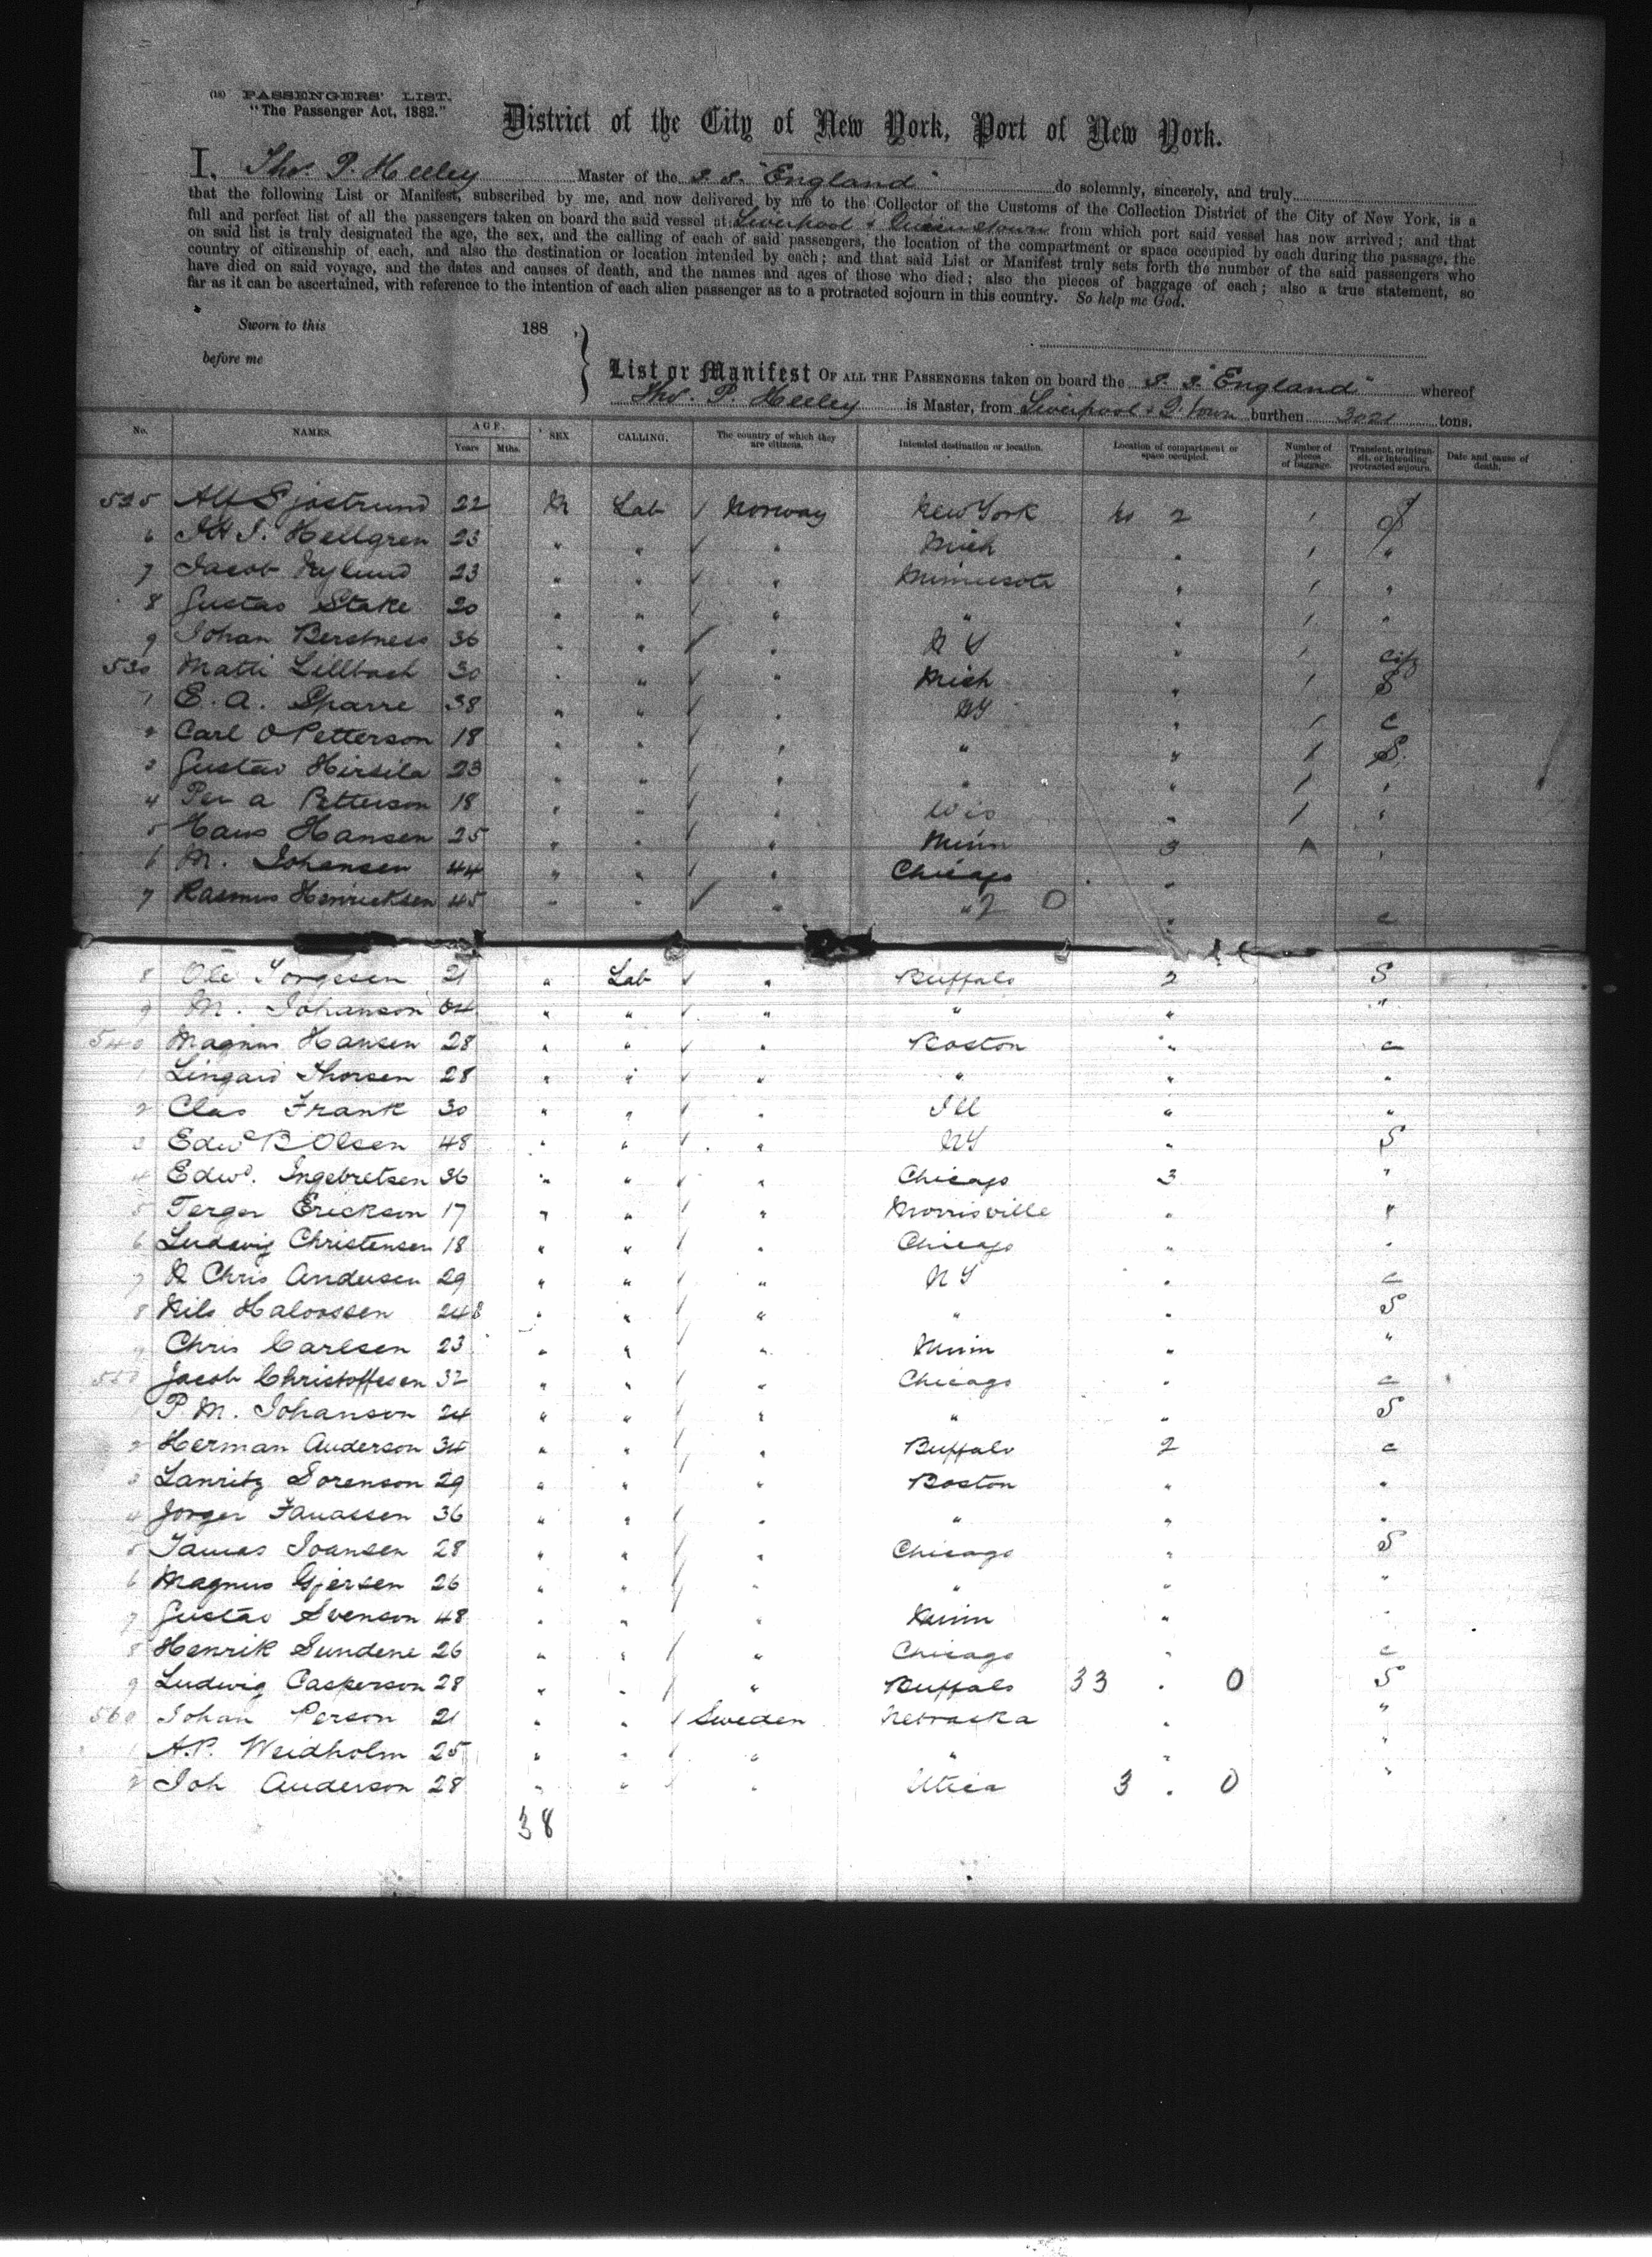 (18) PASSENGERS' LIST.
"The Passenger Act, 1882."
District of the City of New York, Port of New York.
I, Thos. P. Heeley Master of the S.S. "England" do solemnly, sincerely, and truly
that the following List or Manifest, subscribed by me, and now delivered by me to the Collector of the Customs of the Collection District of the City of New York, is a
full and perfect list of all the passengers taken on board the said vessel at Liverpool & Queenstown from which port said vessel has now arrived; and that
on said list is truly designated the age, the sex, and the calling of each of said passengers, the location of the compartment or space occupied by each during the passage, the
country of citizenship of each, and also the destination or location intended by each; and that said List or Manifest truly sets forth the number of the said passengers who
have died on said voyage, and the dates and causes of death, and the names and ages of those who died; also the pieces of baggage of each; also a true statement, so
far as it can be ascertained, with reference to the intention of each alien passenger as to a protracted sojourn in this country. So help me God.
Sworn to this 188
before me
List or Manifest OF ALL THE PASSENGERS taken on board the S.S. "England" whereof
Thos. P. Heeley is Master, from Liverpool & Q. town burthen 3021 tons.
No. NAMES. AGE. Years Mths. SEX CALLING. The country of which they are citizens. Intended destination or location. Location of compartment or space occupied. Number of pieces of baggage. Transient, or intransit, or intending protracted sojourn. Date and cause of death.
525 Alf Sjostrund 22 M Lab / Norway New York 2 1
6 Hellgren 23 " " / " Mich " 1 "
7 Jacob Nylund 23 " " / " Minnesota " 1 "
8 Gustav Stake 20 " " / " " " 1 "
9 Johan Berstness 36 " " / " N Y " 1
530 Matti Lillback 30 " " / " Mich " 1 S
1 E. A. Sparre 38 " " / " NY " 1 c
2 Carl O Petterson 18 " " / " " " 1 S.
3 Gustav Hirsila 23 " " / " " " 1 "
4 Per A Petterson 18 " " / " Wis " 1 "
5 Hans Hansen 25 " " / " Minn 3 "
6 M. Johansen 44 " " / " Chicago "
7 Rasmus Henricksen 45 " " / " " 2 0 " c
8 Ole Torgesen 21 " Lab / " Buffalo 2 S
9 M. Johanson 24 " " / " " " "
540 Magnus Hansen 28 " " / " Boston " c
1 Lingard Thorsen 28 " " / " " " "
2 Clas Frank 30 " " / " Ill " "
3 Edwd B Olsen 48 " " / " NY " S
4 Edwd. Ingebretsen 36 " " / " Chicago 3 "
5 Terger Erickson 17 " " / " Morrisville " "
6 Ludwig Christensen 18 " " / " Chicago " "
7 N Chris Andersen 29 " " / " N Y " c
8 Nils Halvorssen 24 " " / " " " S
9 Chris Carlsen 23 " " / " Minn " "
550 Jacob Christoffesen 32 " " / " Chicago " c
1 P. M. Johanson 24 " " / " " " S
2 Herman Anderson 34 " " / " Buffalo 2 c
3 Lauritz Sorenson 29 " " / " Boston " "
4 Jorger Fanassen 36 " " / " " " "
5 James Joansen 28 " " / " Chicago " S
6 Magnus Gjersen 26 " " / " " " "
7 Gustav Svenson 48 " " " Minn " "
8 Henrik Sundene 26 " " / " Chicago " c
9 Ludwig Casperson 28 " " / " Buffalo 33 " 0 S
560 Johan Person 21 " " / Sweden Nebraska " "
1 A.P. Weidholm 25 " " / " " " "
2 Joh Anderson 28 " " / " Utica 3 " 0 "
38